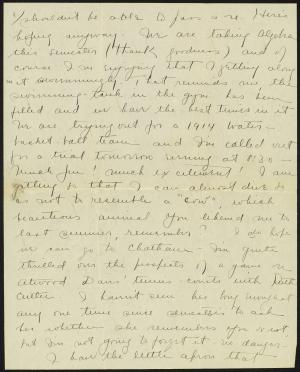 I shouldn't be able to pass some. Here's
hoping anyway. We are taking Algebra
this semester (thank goodness) and of
course I'm enjoying that & getting along
it swimmingly. That reminds me the
swimming-tank in the gym has been
filled and we have the best times in it
We are trying out for a 1914 water-
basket ball team and I'm called out
for a trial tomorrow evening at 8:30 -
Much fun! much excitement! I am
getting so that I can almost dive so
as not to resemble a "cow", which
beauteous animal you likened me to
last summer, remember? I do hope
we can go to Chatham - I'm quite
thrilled over the prospects of a game on
Atwood Davis' tennis-courts with Ruth
Cutler I haven't seen her long enough at
any one time since to ask
her whether she remembers you or not,
but I'm not going to forget it - no danger.
I have the little apron that